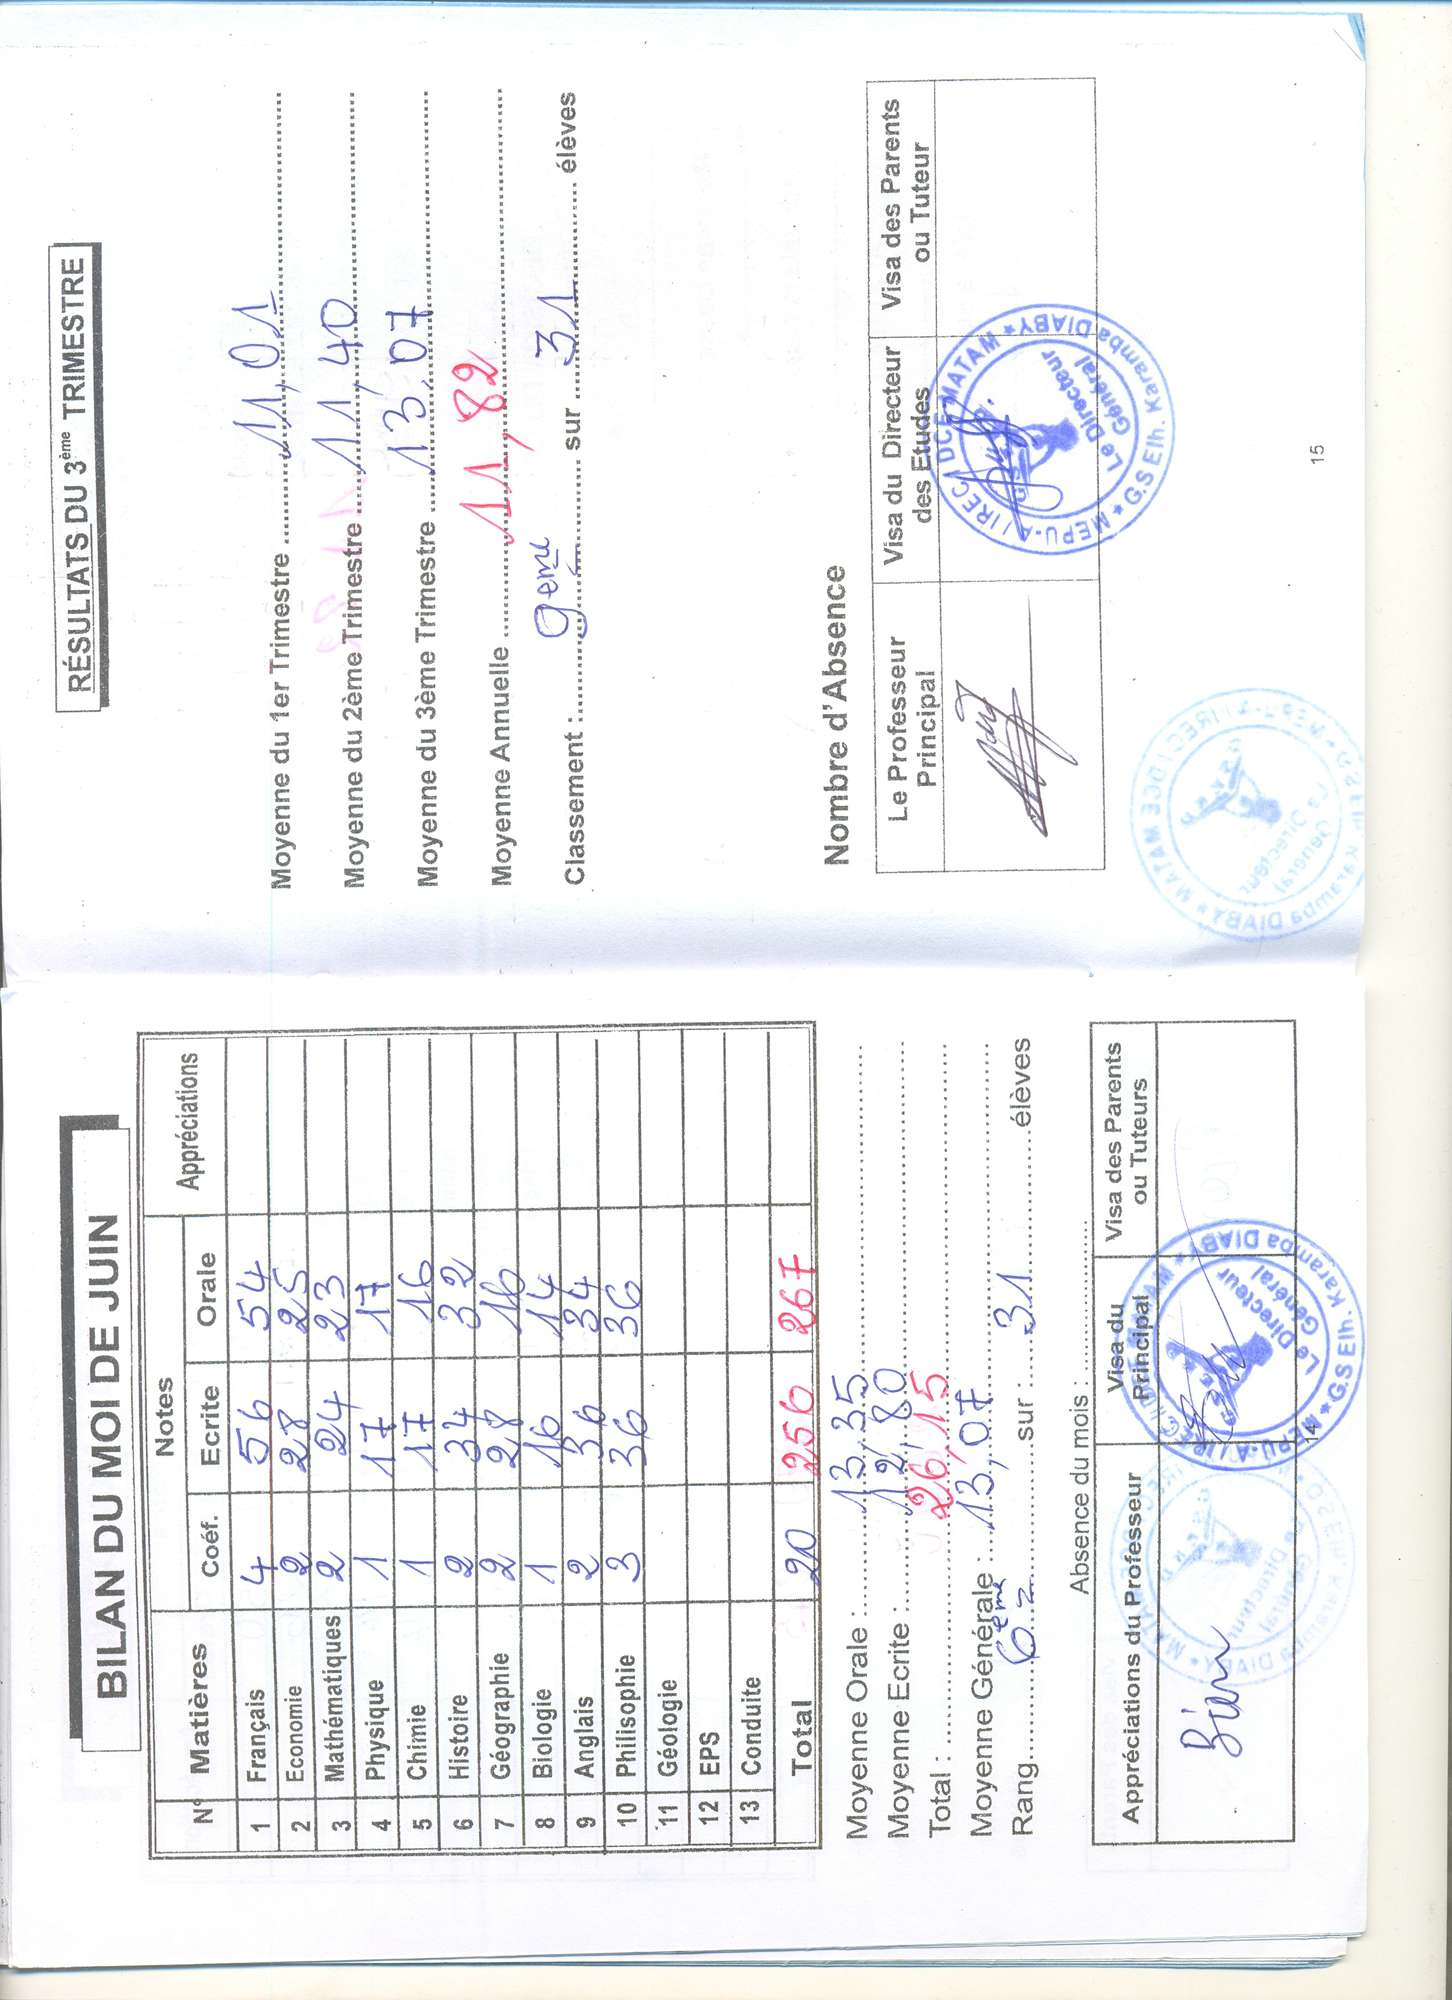 BILAN DU MOI DE JUIN
N° Matières Notes Appréciations
Coéf. Ecrite Orale
1 Français 4 56 54
2 Economie 2 28 25
3 Mathématiques 2 24 23
4 Physique 1 17 17
5 Chimie 1 17 16
6 Histoire 2 34 32
7 Géographie 2 28 16
8 Biologie 1 16 14
9 Anglais 2 36 34
10 Philisophie 3 36 36
11 Géologie
12 EPS
13 Conduite
Total 20 256 267
Moyenne Orale : 13,35
Moyenne Ecrite : 12,80
Total : 26,15
Moyenne Générale : 13,07
Rang 6eme sur : 31 élèves
Absence du mois :
Appréciations du Professeur Visa du Principal Visa des Parents ou Tuteurs
Bien
MEPU-A / IREC / DCE MATAM * G.S Elh. Karamba DIABY *
Le Directeur
Général
14
RÉSULTATS DU 3ème TRIMESTRE
Moyenne du 1er Trimestre 11,01
Moyenne du 2ème Trimestre 11,40
Moyenne du 3ème Trimestre 13,07
Moyenne Annuelle 11,82
Classement : 9eme sur 31 élèves
Nombre d'Absence
Le Professeur Principal Visa du Directeur des Etudes Visa des Parents ou Tuteur
MEPU-A / IREC / DCE MATAM * G.S Elh. Karamba DIABY *
Le Directeur
Général
15